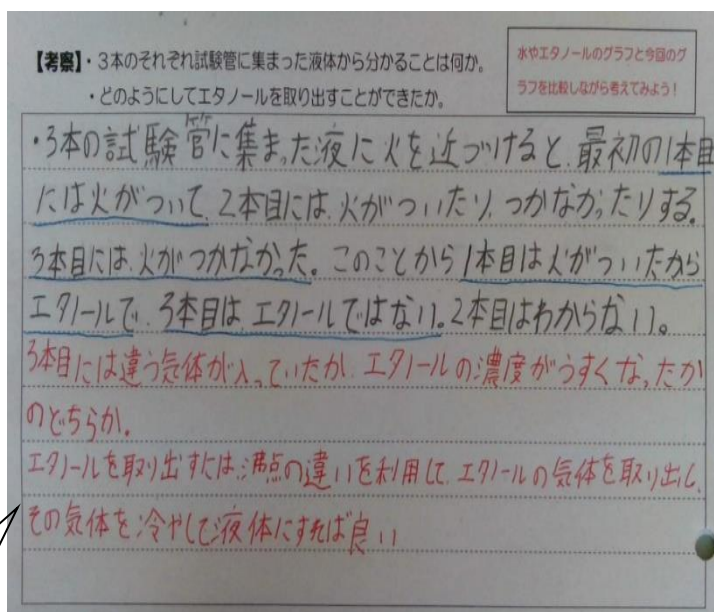 【考察】・3本のそれぞれ試験管に集まった液体から分かることは何か。
・どのようにしてエタノールを取り出すことができたか。
水やエタノールのグラフと今回のグ
ラフを比較しながら考えてみよう！
・3本の試験管に集まった液に火を近づけると、最初の1本目
には火がついて、2本目には、火がついたり、つかなかったりする。
3本目には、火がつかなかった。このことから1本目は火がついたから
エタノールで、3本目は、エタノールではない。2本目はわからない。
3本目には違う気体が入っていたか、エタノールの濃度がうすくなったか
のどちらか。
エタノールを取り出すには、沸点の違いを利用して、エタノールの気体を取り出し、
その気体を冷やして液体にすれば良い